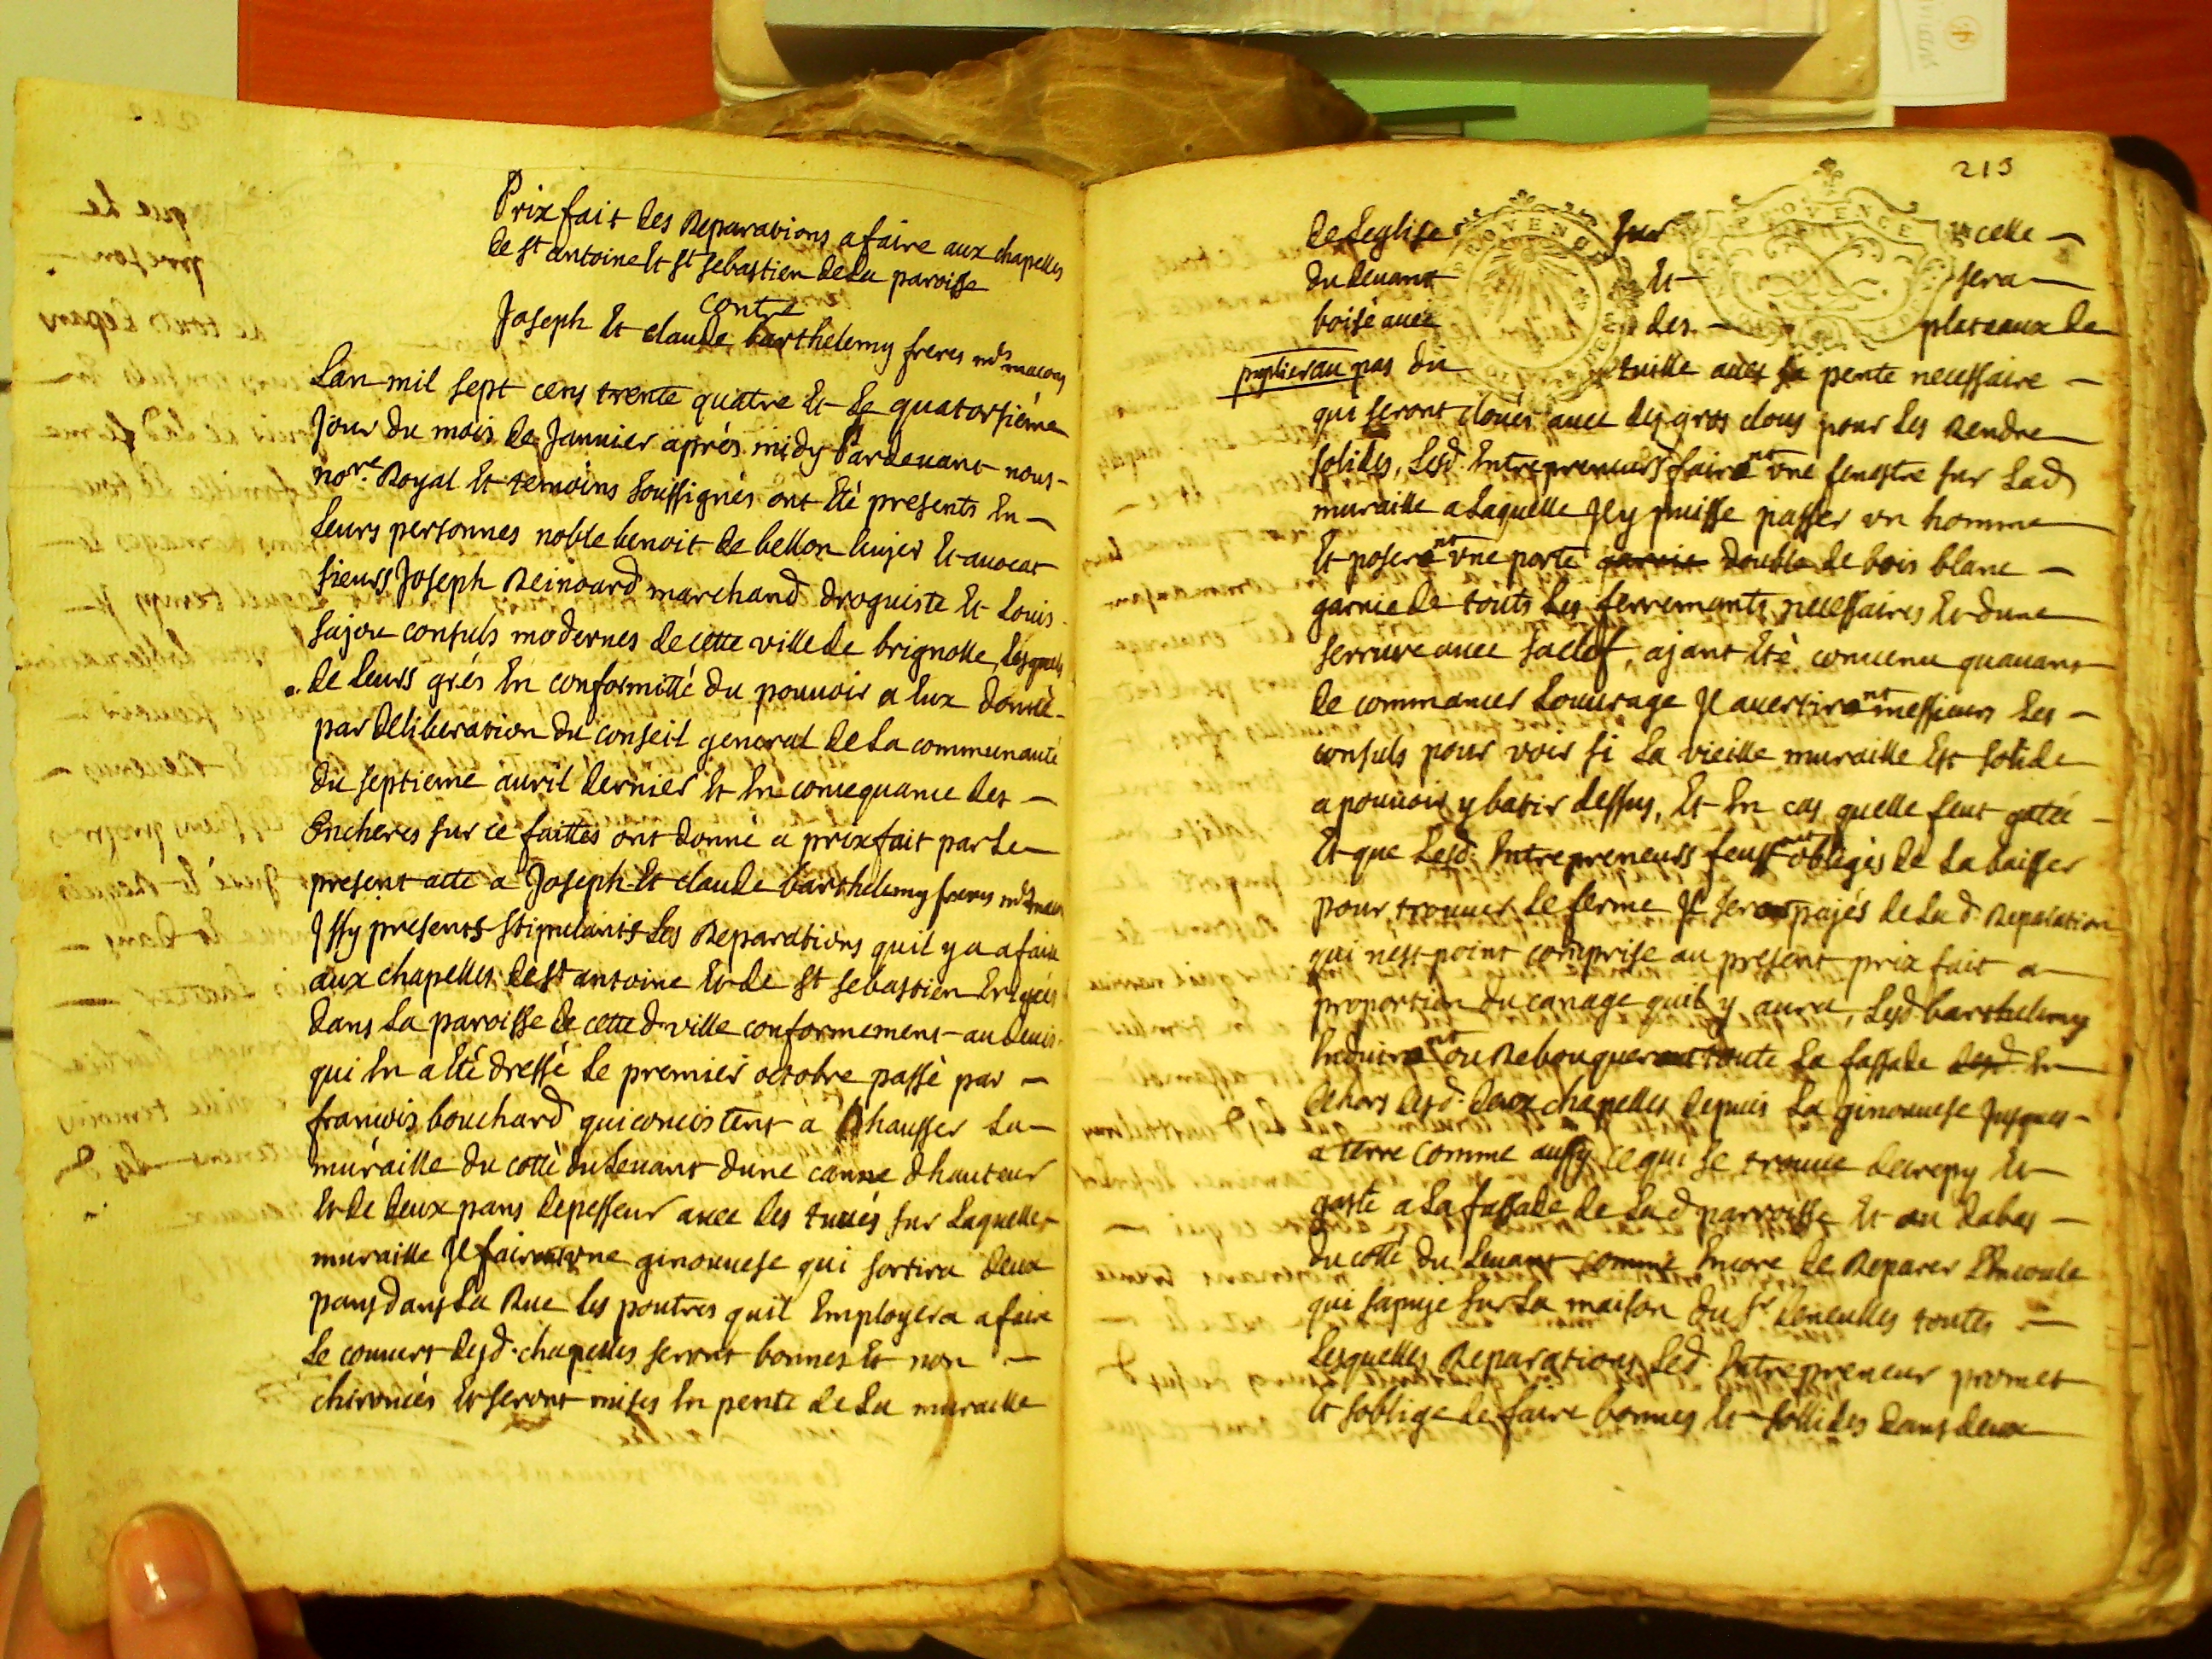 Prix fait des Reparations a faire aux chapelles
de st antoine Et st sebastien de La paroisse
contre
Joseph Et claude barthelemy freres mds macons
Lan mil sept cens trente quatre Et Le quatorsiéme
Jour du mois de Januier aprés midy Pardeuant nous
nore. Royal Et temoins soussignés ont Eté presents En
Leurs personnes noble benoit de bellon Euyer Et auocat
sieurs Joseph Reinoard marchand droguiste Et Louis
sajou consuls modernes de cette ville de brignolle, Lesquels
de Leurs grés En conformitté du pouuoir a Eux donné
par deliberation du conseil general de La communauté
du septieme auril dernier Et En consequance des
Encheres sur ce faittes ont donné a prix fait par Le
present atte a Joseph Et claude barthelemy freres mds macons
Jssy presents stipulants Les Reparations quil y a a faire
aux chapelles de st antoine Et de st sebastien Erigées
dans La paroisse de cette d. ville conformement au deuis
qui En a Eté dressé Le premier octobre passé par
francois bouchard qui concistent a Rhausser La
muraille du cotté du Leuant dune canne dhauteur
Et de deux pans depesseur auec des tuués sur Laquelle
muraille Jl fairont vne ginouuese qui sortira deux
pans dans La Rue Les poutres quil Employera a faire
Le couuert desd. chapelles seront bonnes Et non
chironées Et seront mises En pente de La muraille
213
PROVENCE
PROVENCE
de Leglise sur celle
du Leuant Et sera
boisé auec des plateaux de
puplier au pas du tuille auec sa pente necessaire
qui seront cloués auec des gros clous pour Les Rendre
solides, Lesd. Entrepreneurs fairont vne fenestre sur Lad
muraille a Laquelle Jl y puisse passer vn homme
Et poseront vne porte garnie double de bois blanc
garnie de touts Les ferrements necessaires Et dune
serrure auec sa clef, ajant Eté conuenu quauant
de commancer Louurage Jl auertiront messieurs Les
consuls pour voir si La vieille muraille Est solide
a pouuoir y batir dessus, Et En cas quelle feut gatée
Et que Lesd. Entrepreneurs feussent obligés de La baisser
pour trouuer Le ferme Jl seront pajés de La d. Reparation
qui nest point comprise au present prix fait a
proportion du canage quil y aura, Lesd barthelemy
Enduiront ou Rebouqueront toute La fassade desd. En
dehors desd. deux chapelles depuis La ginouuese Jusques
a terre comme aussy ce qui se trouue decrepy Et
gasté a La fassade de La d parroisse Et au dabas
du cotté du Leuant comme Encore de Reparer LEncoule
qui sapuye sur La maison du sr. toutes
Lesquelles Reparations Led. Entrepreneur promet
Et soblige de faire bonnes Et sollides dans deux